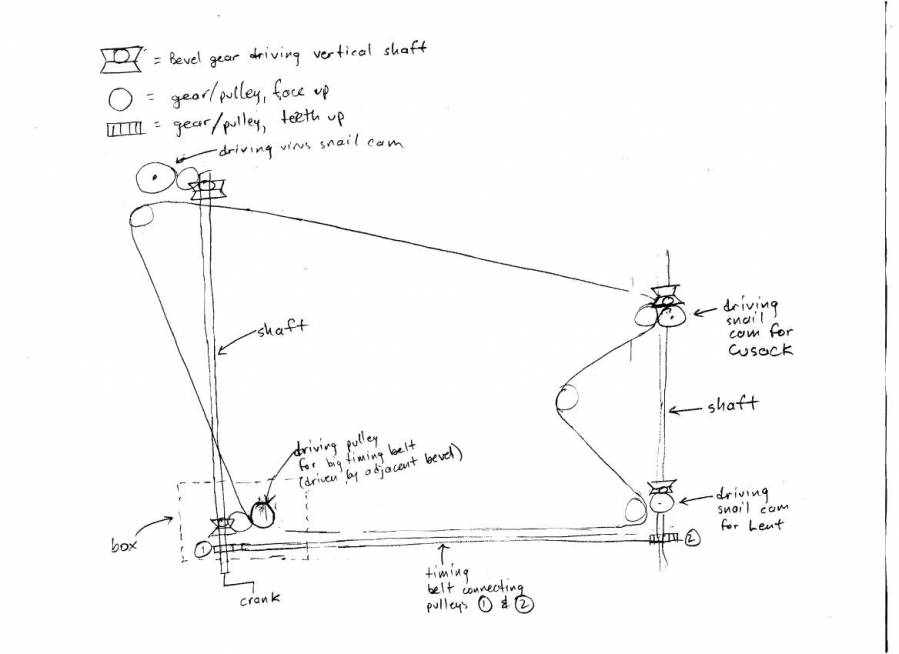 = Bevel gear driving vertical shaft
= gear/pulley, face up
= gear/pulley, teeth up
driving virus snail cam
shaft
driving
snail
cam for
Cusack
shaft
driving pulley
for big timing belt
(driven by adjacent bevel)
driving
snail cam
for Lent
box
1
2
crank
timing
belt connecting
pulleys 1 & 2